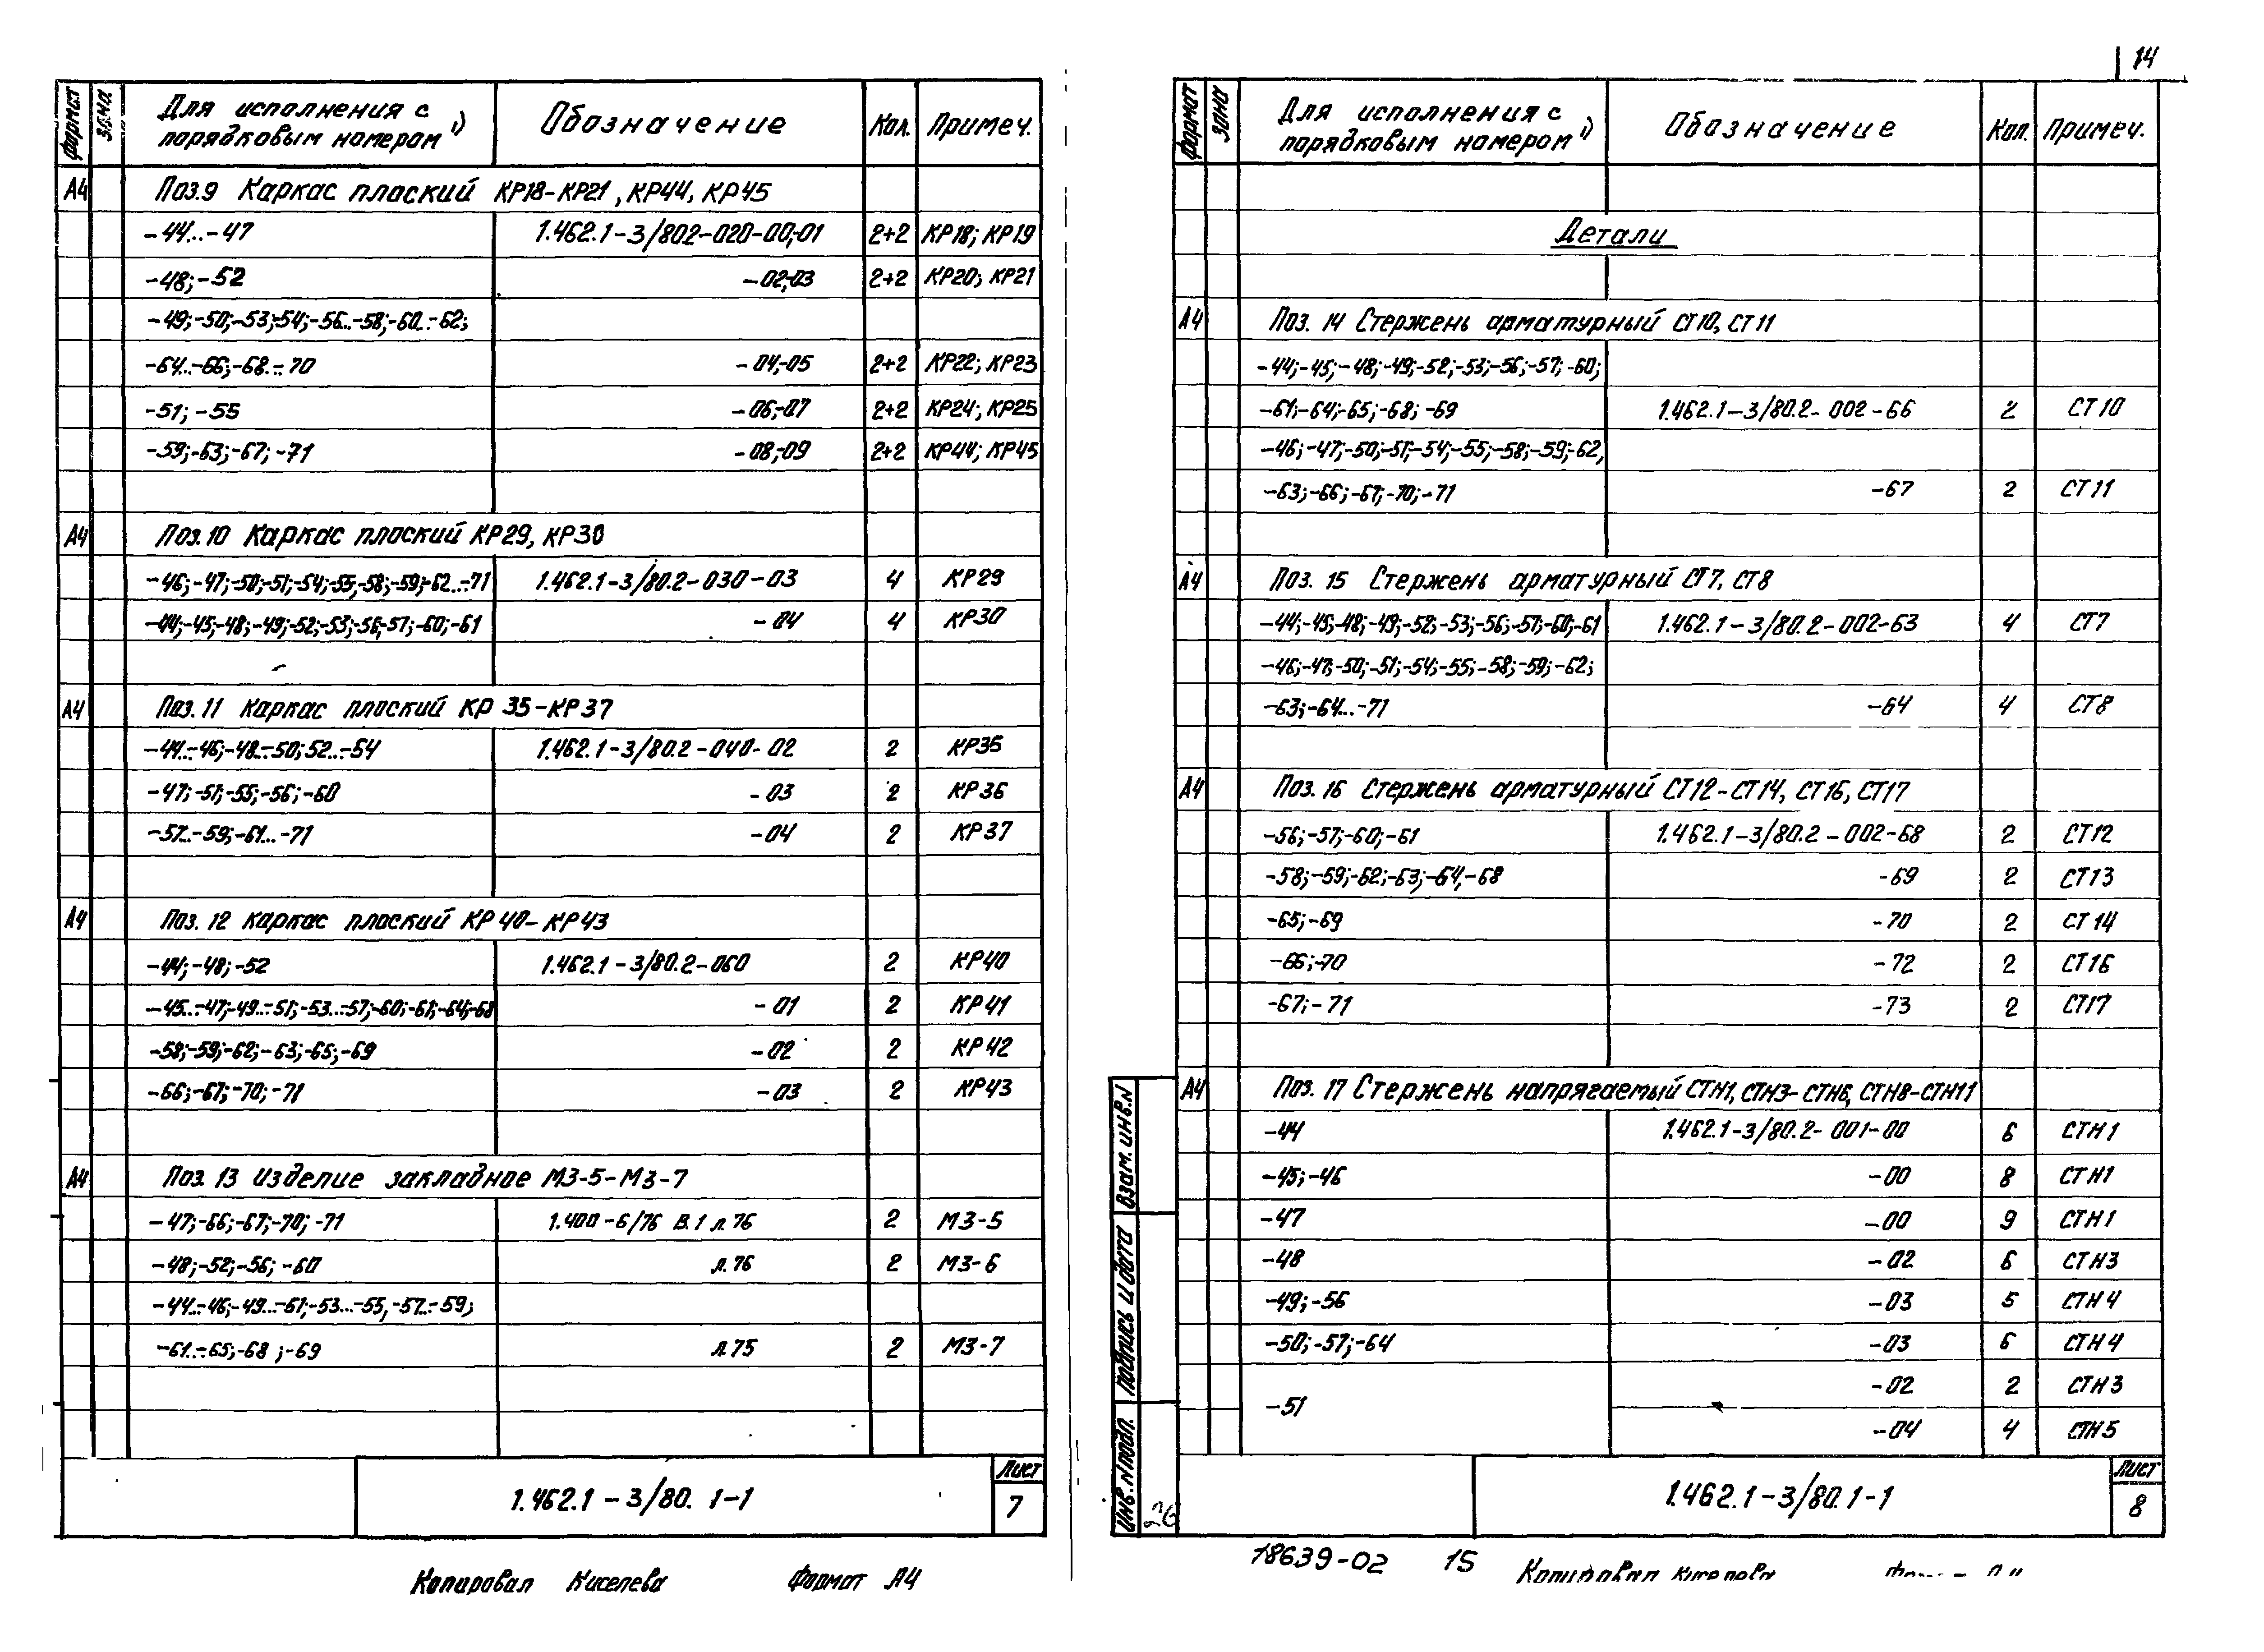 14
формат зона Для исполнения с порядковым номером 1) Обозначение Кол. Примеч.
А4 Поз.9 Каркас плоский КР18-КР21, КР44, КР45
-44..-47 1.462.1-3/802-020-00;-01 2+2 КР18; КР19
-48;-52 -02;-03 2+2 КР20; КР21
-49;-50;-53;-54;-56..-58;-60..-62;
-64..-66;-68..-70 -04;-05 2+2 КР22; КР23
-51; -55 -06;-07 2+2 КР24; КР25
-59;-63;-67; -71 -08;-09 2+2 КР44; КР45
А4 Поз.10 Каркас плоский КР29, КР30
-46;-47;-50;-51;-54;-55;-58;-59;-62..-71 1.462.1-3/80.2-030-03 4 КР29
-44;-45;-48;-49;-52;-53;-56;-57;-60;-61 -04 4 КР30
А4 Поз.11 Каркас плоский КР 35-КР37
-44..-46;-48..-50;52..-54 1.462.1-3/80.2-040-02 2 КР35
-47;-51;-55;-56;-60 -03 2 КР36
-57..-59;-61..-71 -04 2 КР37
А4 Поз.12 Каркас плоский КР40-КР43
-44;-48;-52 1.462.1-3/80.2-060 2 КР40
-45..-47;-49..-51;-53..-57;-60;-61;-64;-68 -01 2 КР41
-58;-59;-62;-63;-65;-69 -02 2 КР42
-66;-67;-70;-71 -03 2 КР43
А4 Поз.13 Изделие закладное МЗ-5-МЗ-7
-47;-66;-67;-70;-71 1.400-6/76 В.1 л.76 2 МЗ-5
-48;-52;-56;-60 л.76 2 МЗ-6
-44..-46;-49..-51;-53...-55,-57..-59;
-61..-65;-68 ;-69 л.75 2 МЗ-7
1.462.1-3/80. 1-1 Лист 7
Копировал Киселева Формат А4
формат зона Для исполнения с порядковым номером 1) Обозначение Кол. Примеч.
Детали
А4 Поз. 14 Стержень арматурный СТ10, СТ11
-44;-45;-48;-49;-52;-53;-56;-57;-60;
-61;-64;-65;-68; -69 1.462.1-3/80.2-002-66 2 СТ10
-46;-47;-50;-51;-54;-55;-58;-59;-62,
-63;-66;-67;-70;-71 -67 2 СТ11
А4 Поз. 15 Стержень арматурный СТ7, СТ8
-44;-45;-48;-49;-52;-53;-56;-57;-60;-61 1.462.1-3/80.2-002-63 4 СТ7
-46;-47;-50;-51;-54;-55;-58;-59;-62;
-63;-64...-71 -64 4 СТ8
А4 Поз. 16 Стержень арматурный СТ12-СТ14, СТ16, СТ17
-56;-57;-60;-61 1.462.1-3/80.2-002-68 2 СТ12
-58;-59;-62;-63;-64,-68 -69 2 СТ13
-65;-69 -70 2 СТ14
-66;-70 -72 2 СТ16
-67;-71 -73 2 СТ17
А4 Поз. 17 Стержень напрягаемый СТН1, СТН3-СТН6, СТН8-СТН11
-44 1.462.1-3/80.2-001-00 6 СТН1
-45;-46 -00 8 СТН1
-47 -00 9 СТН1
-48 -02 6 СТН3
-49;-56 -03 5 СТН4
-50;-57;-64 -03 6 СТН4
-51 -02 2 СТН3
-04 4 СТН5
Взам. инв. N
Подпись и дата
Инв. N подл.
26
1.462.1-3/80.1-1 Лист 8
18639-02 15 Копировал Киселева